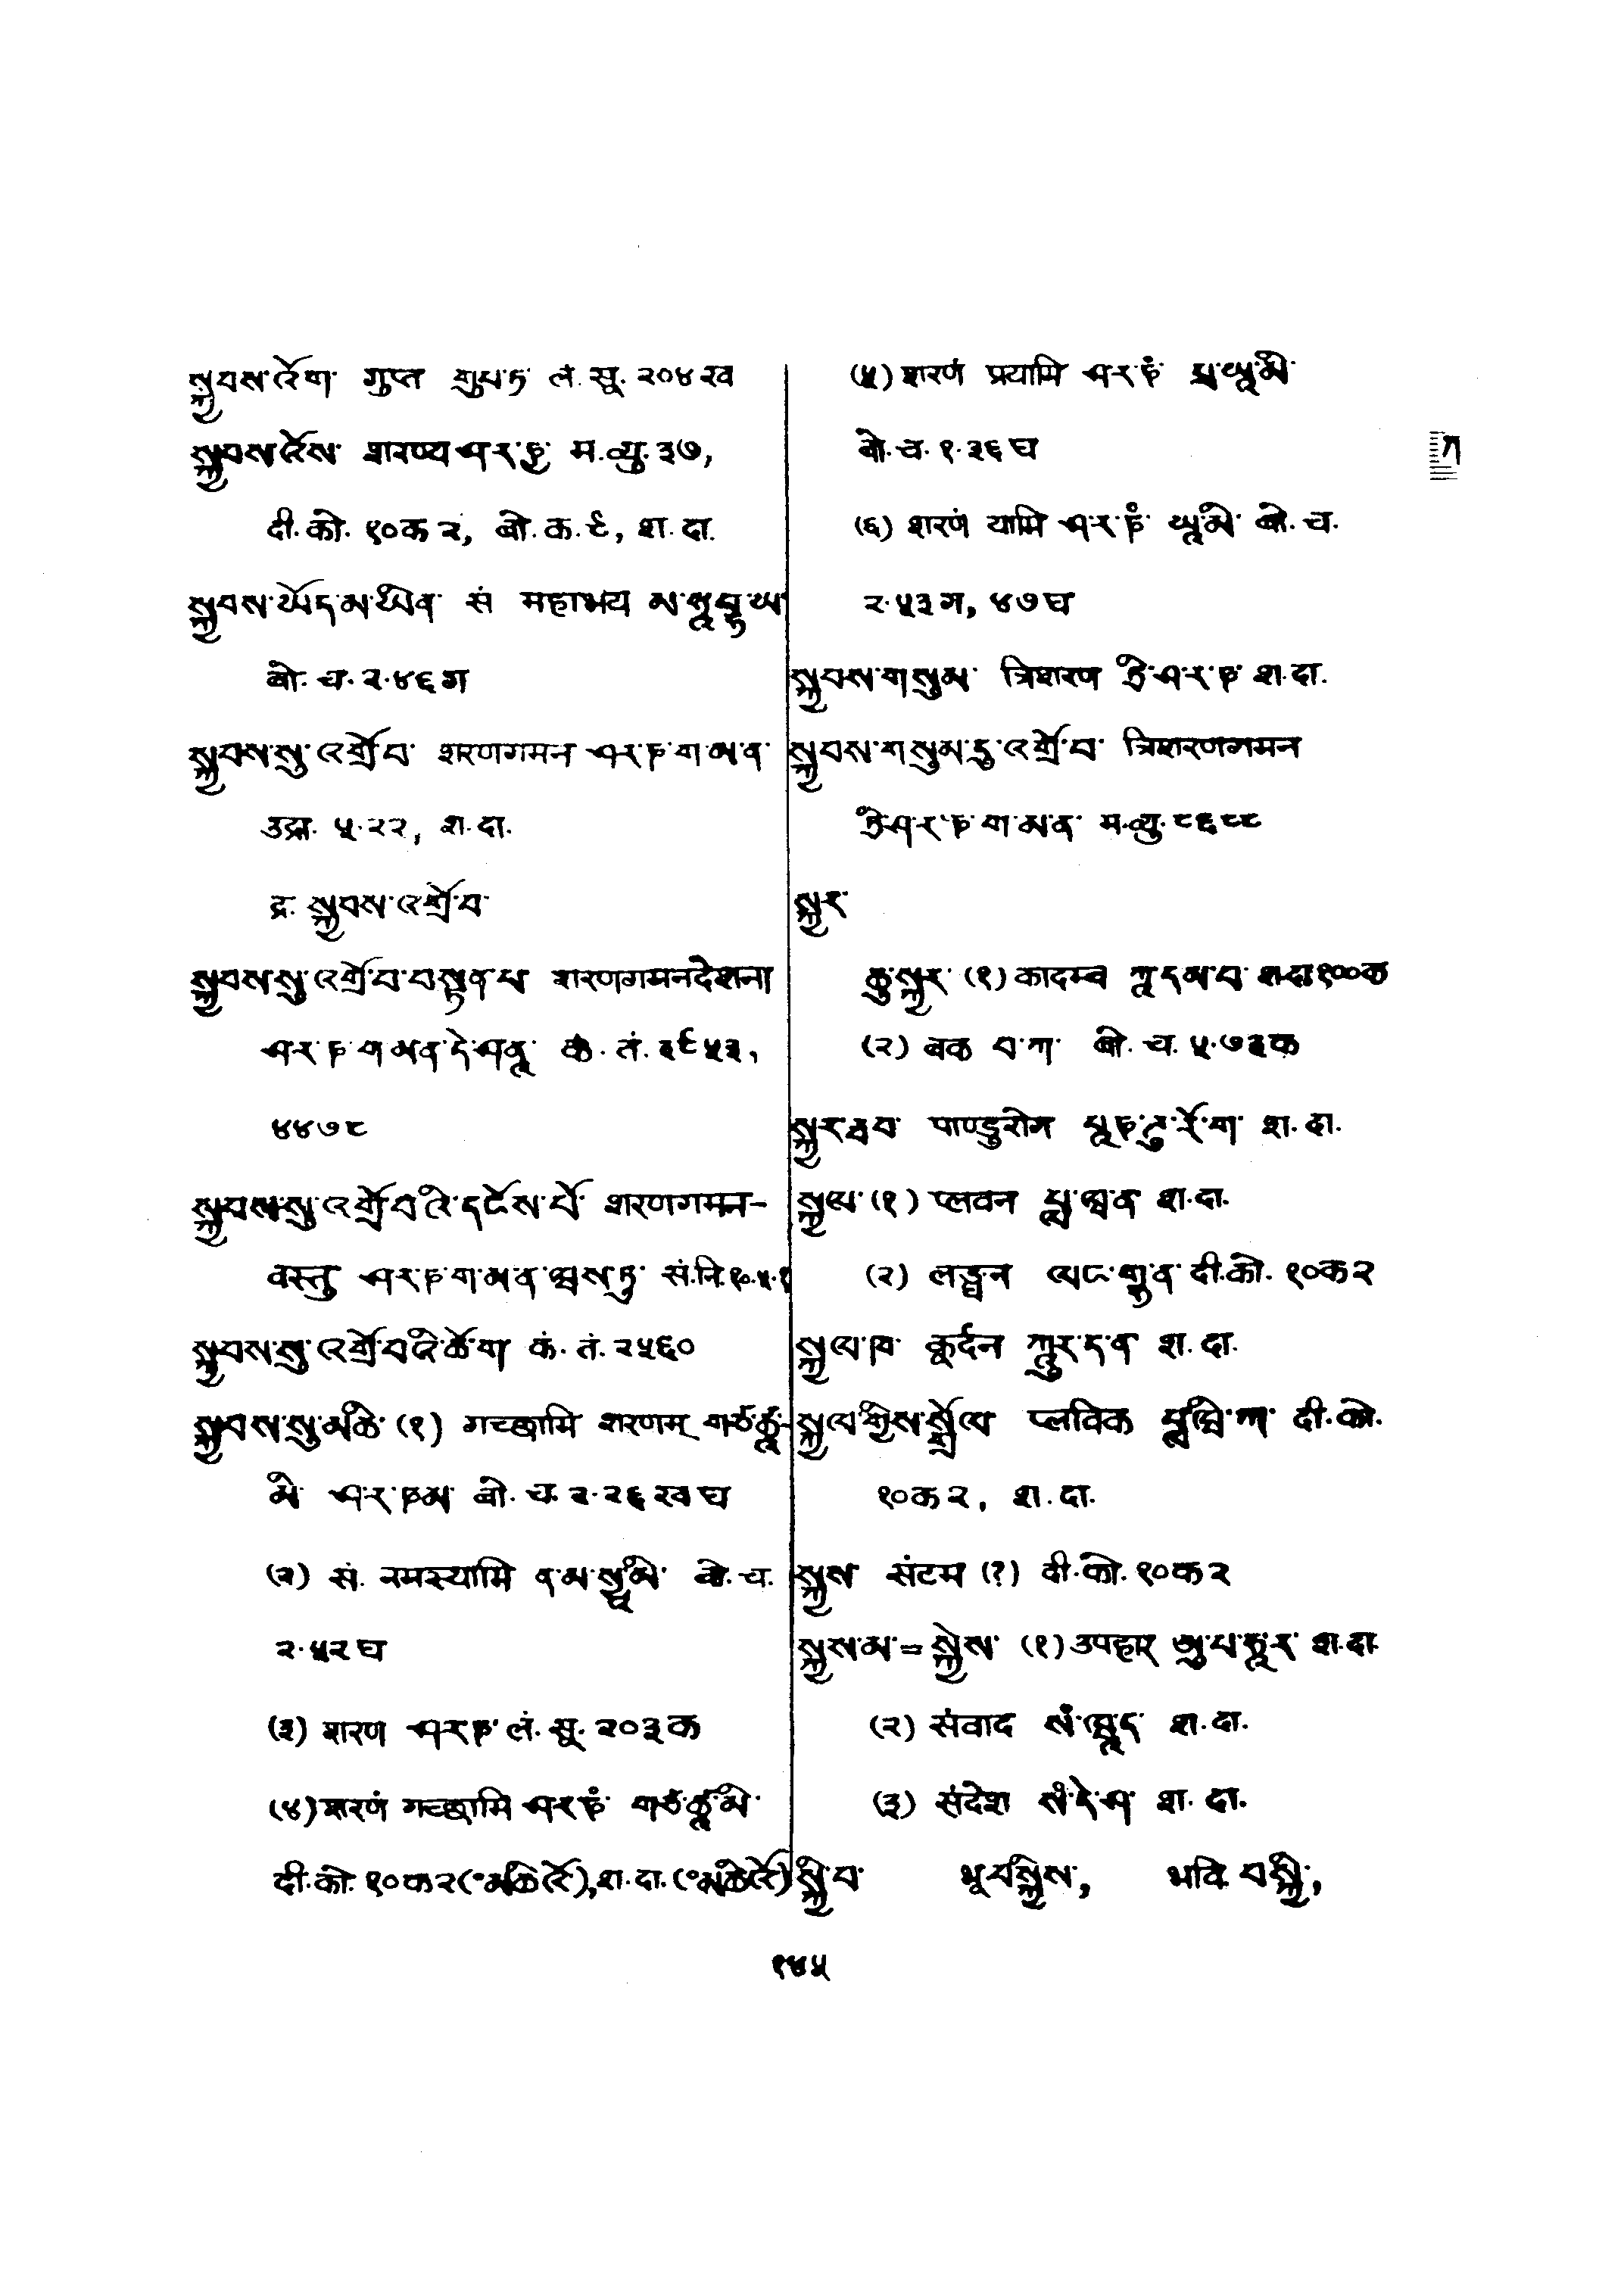 སྐྱབས་འོག་ गुप्त གུཔ་ཏ་ लं. सू. २०४ ख
སྐྱབས་འོས་ शरण्य ཤ་ར་ཎྱ་ म.व्यु. ३७,
दी. को. १०क २, बो. क. ९, श. दा.
སྐྱབས་ཡོད་མ་ཡིན་ सं महाभय མ་ཧཱ་བྷ་ཡ་
बो. च. २.४६ ग
སྐྱབས་སུ་འགྲོ་བ་ शरणगमन ཤ་ར་ཎ་ག་མ་ན་
उद्रा. ५.२२, श. दा.
द्र. སྐྱབས་འགྲོ་བ་
སྐྱབས་སུ་འགྲོ་བ་བསྟན་པ་ शरणगमनदेशना
ཤ་ར་ཎ་ག་མན་དེ་ཤ་ནཱ་ कं. तं. ३९५३,
४४७८
སྐྱབས་སུ་འགྲོ་བའི་དངོས་པོ་ शरणगमन-
वस्तु ཤ་ར་ཎ་ག་མ་ན་ཝས་ཏུ་ सं.नि. १०.५.१
སྐྱབས་སུ་འགྲོ་བའི་ཚོ་ག་ कं. तं. २५६०
སྐྱབས་སུ་མཆི་ (१) गच्छामि शरणम् གཙྪཱ-
མི་ ཤ་ར་ཎམ་ बो. च. २.२६ ख घ
(२) सं. नमस्यामि ན་མ་སྱཱ་མི་ बो. च.
२.५२ घ
(३) शरण ཤ་ར་ཎ་ लं. सू. २०३ क
(४) शरणं गच्छामि ཤ་ར་ཎཾ་ གཙྪཱ་མི་
दी. को. १०क २ (°མཆིའོ), श. दा. (°མཆིའོ)
(५) शरणं प्रयामि ཤ་ར་ཎཾ་ པྲ་ཡཱ་མི་
बो. च. १.३६ घ
(६) शरणं यामि ཤ་ར་ཎཾ་ ཡཱ་མི་ बो. च.
२.५३ ग, ४७ घ
སྐྱབས་གསུམ་ त्रिशरण ཏྲི་ཤ་ར་ཎ་ श. दा.
སྐྱབས་གསུམ་དུ་འགྲོ་བ་ त्रिशरणगमन
ཏྲི་ཤ་ར་ཎ་ག་མ་ན་ म.व्यु. ८६८८
སྐྱར་
ཆུ་སྐྱར་ (१) कादम्ब ཀཱ་དམ་བ་ श.दा. १००क
(२) बक བ་ཀ་ बो. च. ५.७३क
སྐྱར་རྦབ་ पाण्डुरोग པཱཎ་ཌུ་རོ་ག་ श. दा.
སྐྱལ་ (१) प्लवन པླ་ཝ་ན་ श. दा.
(२) लङ्घन ལང་གྷ་ན་ दी. को. १०क २
སྐྱལ་ཁ་ कूर्दन ཀཱུར་ད་ན་ श. दा.
སྐྱལ་གྱིས་སྒྲོལ་ प्लविक པླ་ཝི་ཀ་ दी. को.
१०क २, श. दा.
སྐྱས་ संटम (?) दी. को. १०क २
སྐྱས་མ་ = སྐྱེས་ (१) उपहार ཨུ་པ་ཧཱ་ར་ श. दा.
(२) संवाद སཾ་ཝཱ་ད་ श. दा.
(३) संदेश སཾ་དེ་ཤ་ श. दा.
སྐྱི་བ་ भू བསྐྱིས་, भवि བསྐྱི་,
ཀ
१४५